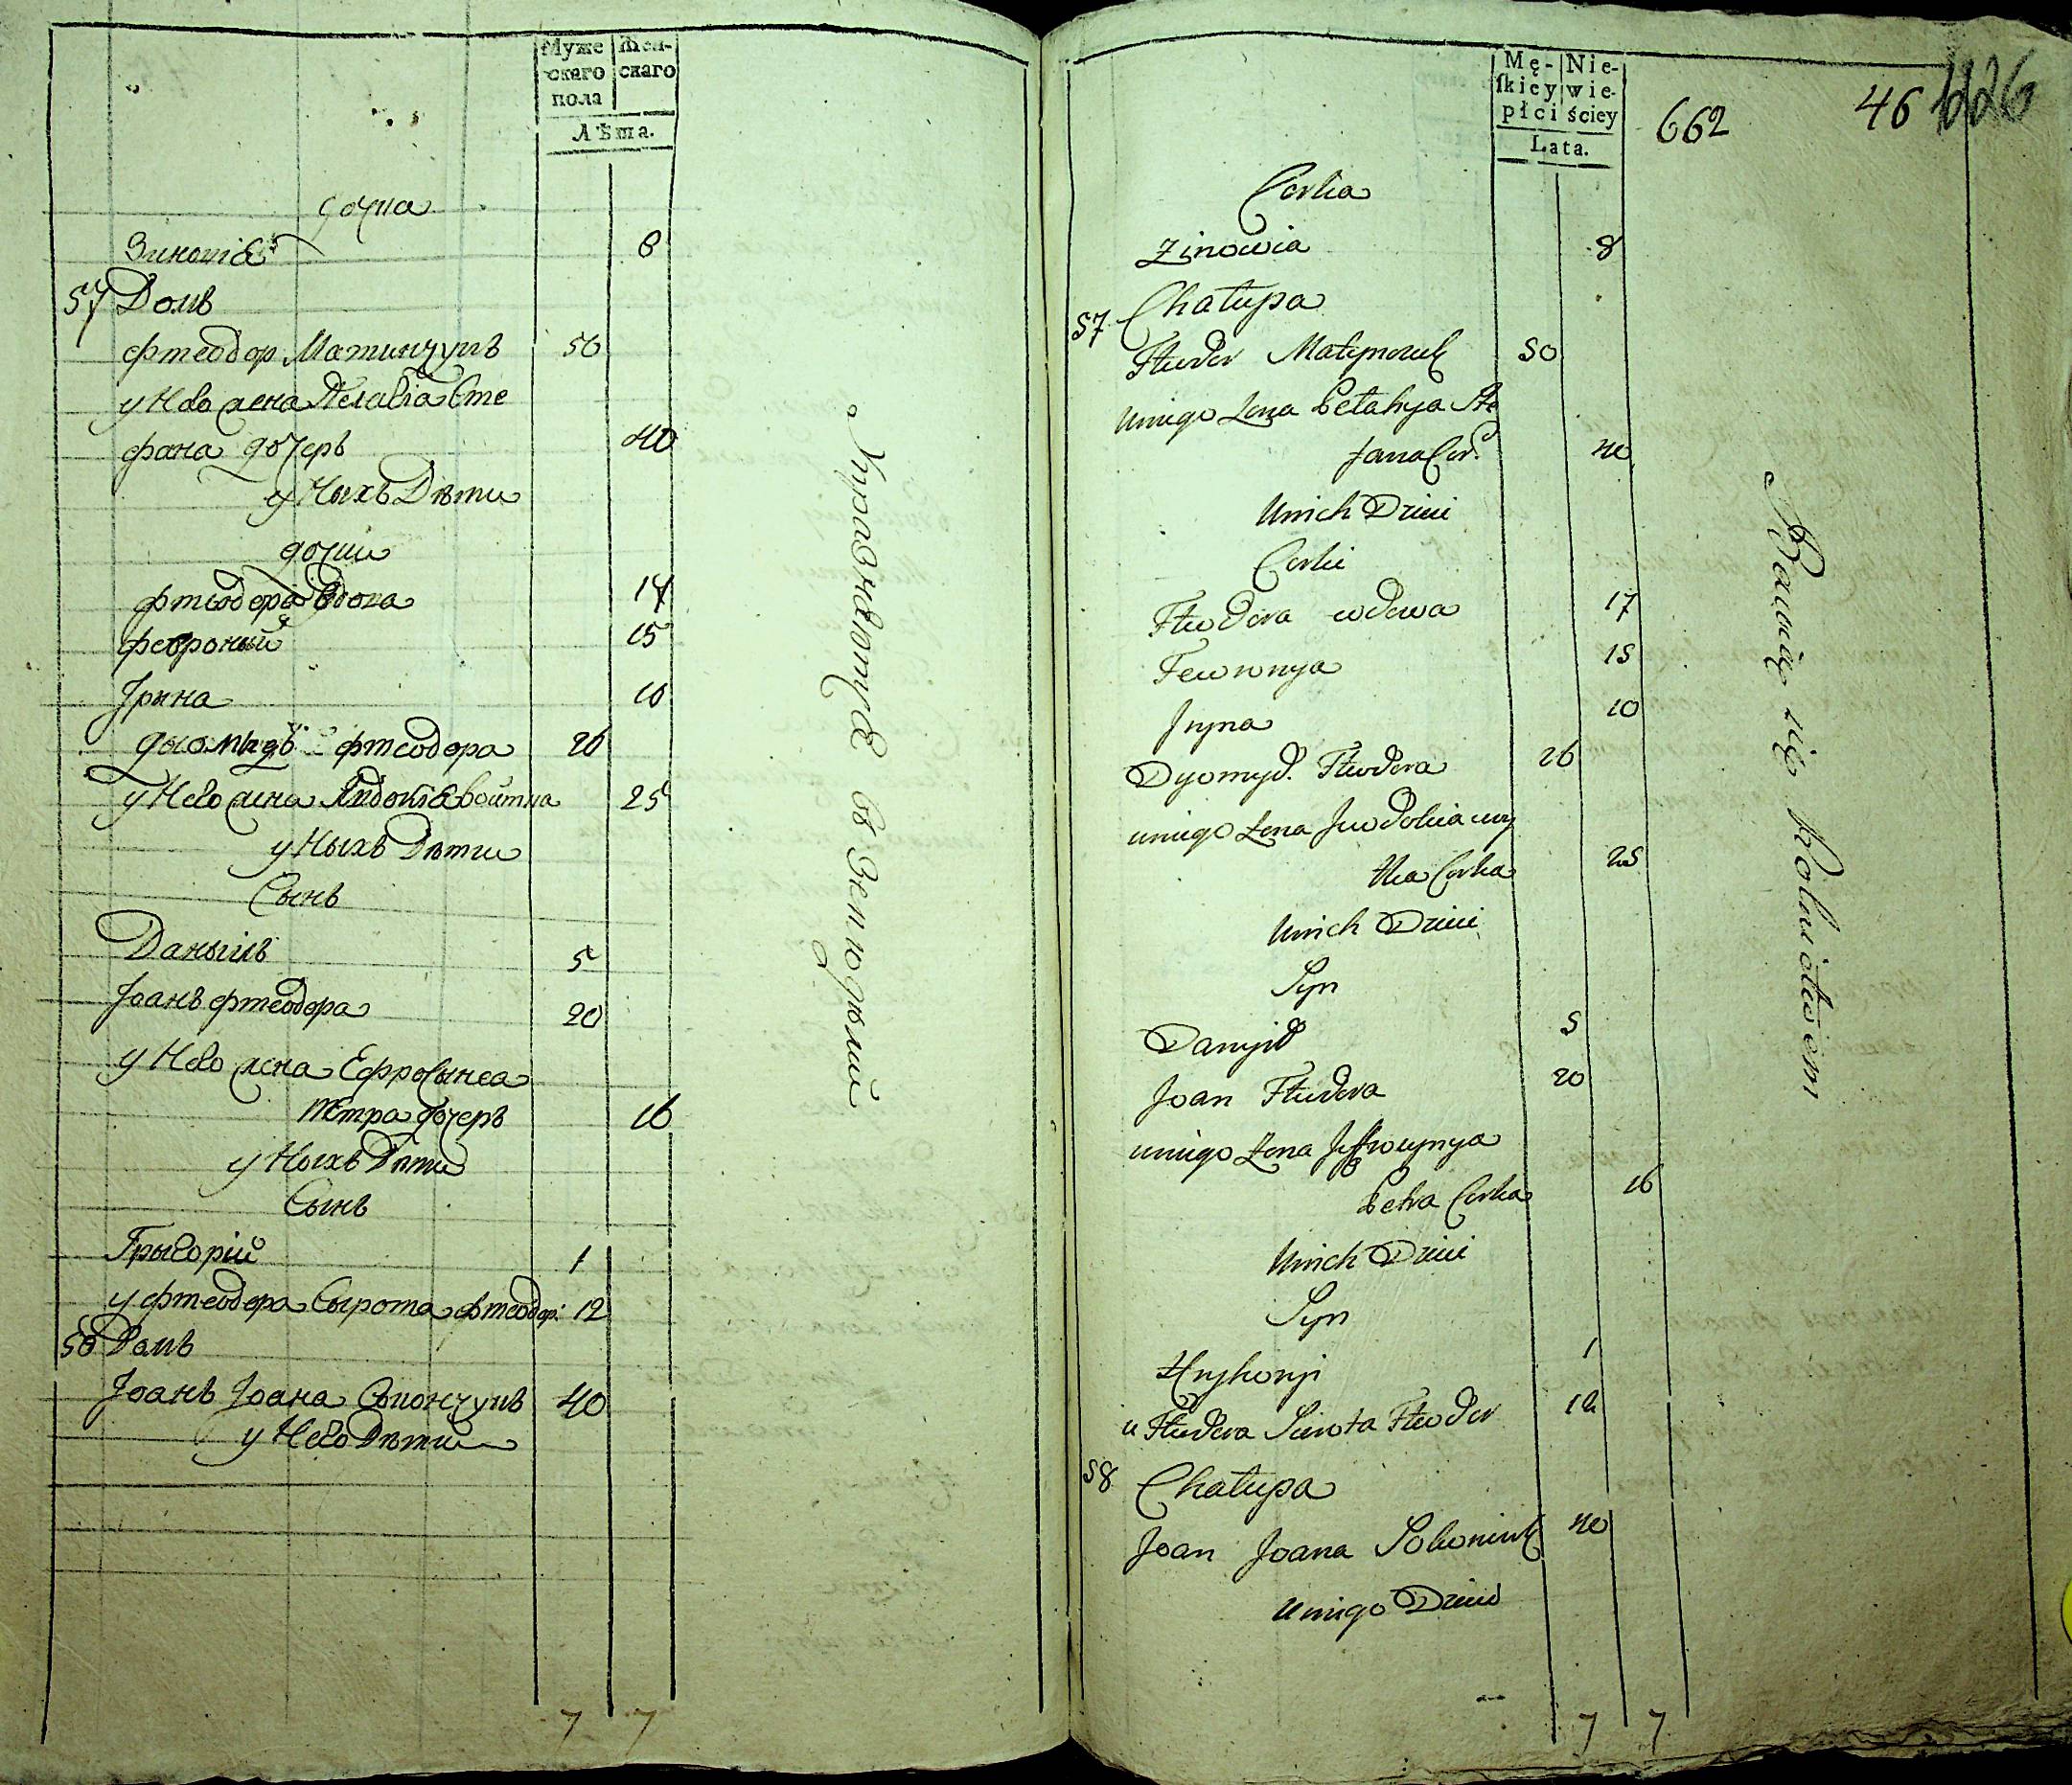 Муже
скаго
пола
Жен-
скаго
Лѣта.
дочка
Зиновіа 8
57 Домъ
Фтеодор Матинчукъ 50
у Него жена Пелагіа Сте
фана дочеръ 40
у Ныхъ Дѣти
дочки
Фтеодора вдова 17
Феврониѣ 15
Јрына 10
Дыомидъ Фтеодора 26
у Него жена Явдокіа Войтка 25
у Ныхъ Дѣти
Сынъ
Даныилъ 5
Јоанъ Фтеодора 20
у Него жена Ефросынеа
Петра дочеръ 16
у Ныхъ Дѣти
Сынъ
Грыгорій 1
у Фтеодора Сырота Фтеодор: 12
58 Домъ
Јоанъ Јоана Сыпончукъ 40
у Него Дѣти
7 7
Упражняютца въ Земледѣлий
Mę-
skiey
płci
Nie-
wie-
ściey
Lata.
662
46 226
Corka
Zinowia 8
57 Chałupa
Fteodor Matynczuk 50
Uniego Żona Pelahya Ste
fana Cor. 40
Unich Dzieci
Corki
Fteodora wdowa 17
Fewronya 15
Iryna 10
Dyomyd. Fteodora 26
uniego Żona Jewdokia woy
tka Corka 25
Unich Dzieci
Syn
Danyił 5
Joan Fteodora 20
uniego Żona Jeffrosynya
Petra Corka 16
Unich Dzieci
Syn
Hryhoryi 1
u Fteodora Sierota Fteodor 12
58 Chałupa
Joan Joana Soboniuk 40
Uniego Dzieci
7 7
Bawią się Rolnictwem